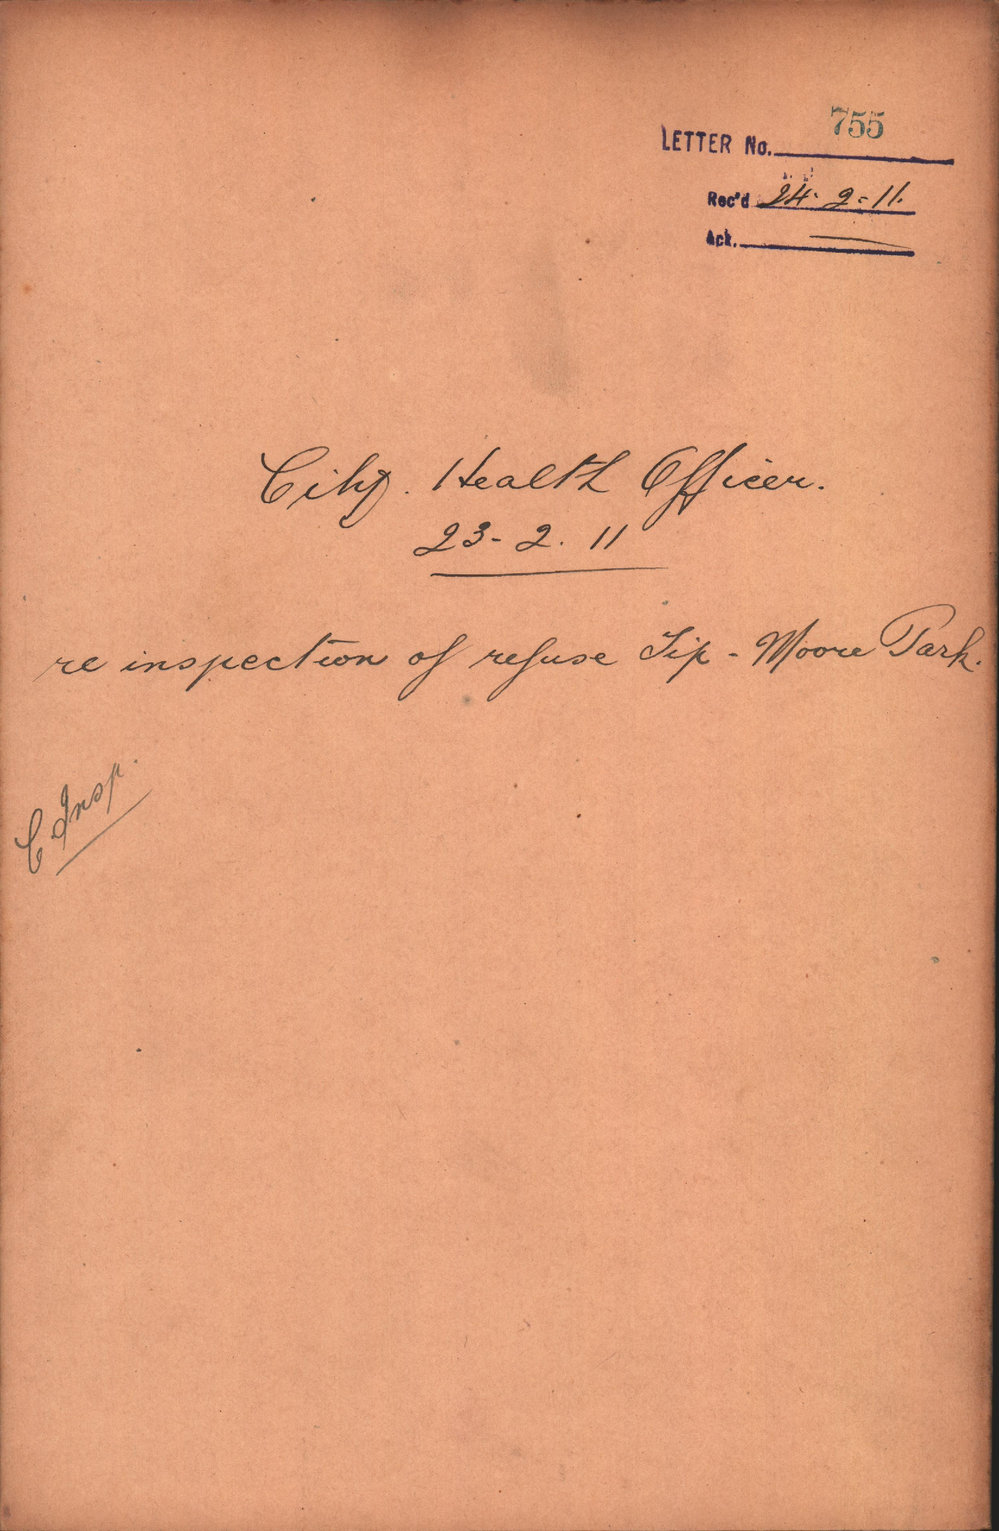 LETTER No. 755
Rec'd 24-2-11.
Ack. —
City. Health Officer.
23-2.11
re inspection of refuse Tip - Moore Park.
C Insp.